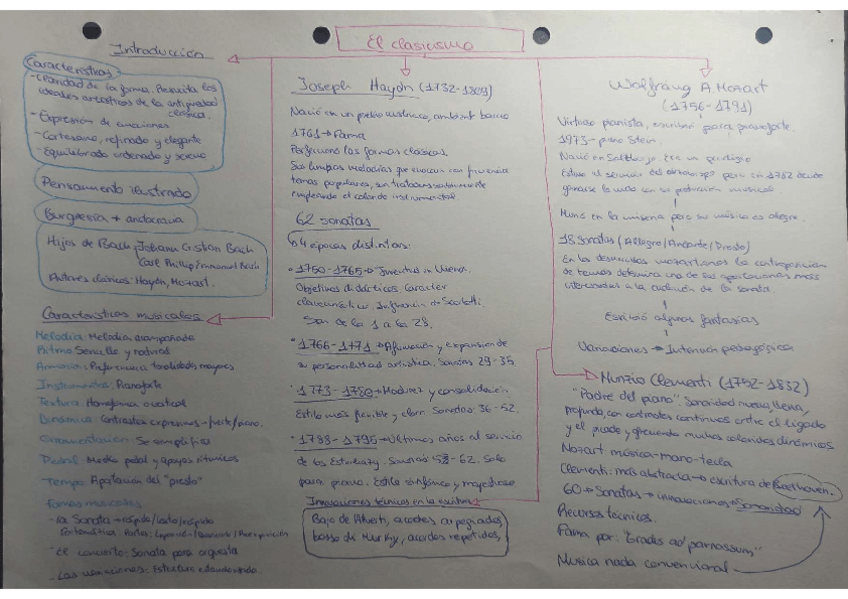 El clasicismo
Introducción
Características
- Claridad de la forma. Resucita los
ideales artísticos de la antigüedad
clásica.
- Expresión de emociones
- Cortesano, refinado y elegante
- Equilibrado ordenado y sereno
Pensamiento ilustrado
Burguesía + aristocracia
Hijos de Bach Johann Cristian Bach
Carl Phillip Emmanuel Bach
Autores clásicos: Haydn, Mozart.
Características musicales
Melodía: Melodía acompañada
Ritmo: Sencillo y natural
Armonía: Preferencia tonalidades mayores
Instrumentos: Pianoforte
Textura: Homofonía vertical
Dinámica: Contrastes expresivos - fuerte/piano.
Ornamentación: Se simplifica
Pedal: Medio pedal y apoyos rítmicos
Tempo: Aparición del "presto"
Formas musicales
- La Sonata → rápido/lento/rápido
Partes: Exposición/Desarrollo/Reexposición
- El concierto: Sonata para orquesta
- Las variaciones: Estructura
Joseph Haydn (1732-1809)
Nació en un pueblo austriaco, ambient barroco
1761 → Fama
Perfecciona las formas clásicas.
Sus limpias melodías que evocan con frecuencia
temas populares, son tratados sabiamente
empleando el color de instrumental
62 sonatas
4 épocas distintas:
• 1750-1765 → Juventud en Viena.
Objetivos didácticos, carácter
clavecinístico. Influencia de Scarlatti.
Son de la 1 a la 28.
• 1766-1771 → Afirmación y expansión de
su personalidad artística. Sonatas 29-35.
• 1773-1780 → Madurez y consolidación
Estilo más flexible y claro. Sonatas 36-52.
• 1788-1795 → Últimos años al servicio
de los Esterhazy. Sonatas 58-62. Solo
para piano. Estilo sinfónico y majestuoso
Innovaciones técnicas en la escritura
Bajo de Alberti, acordes arpegiados,
basso di Murky, acordes repetidos,
Wolfrang A. Mozart
(1756-1791)
Virtuoso pianista, escribió para pianoforte.
1973 - piano Stein.
Nació en Salzburgo. Era un prodigio
Estuvo al servicio del arzobispo pero en 1782 decide
ganarse la vida con su producción musical.
Muere en la miseria pero su música es alegre.
18 Sonatas (Allegro/Andante/Presto)
En los desarrollos mozartianos la contraposición
de temas determina una de sus aportaciones más
interesantes a la evolución de la sonata
Escribió algunas fantasías
Variaciones → Intención pedagógica
Munzio Clementi (1752-1832)
"Padre del piano". Sonoridad nueva, llena,
profunda, con contrastes continuos entre el ligado
y el picado y ofreciendo muchos coloridos dinámicos
Mozart música-mano-tecla
Clementi: más abstracta → escritura de Beethoven.
60 → Sonatas → innovaciones → Sonoridad
Recursos técnicos.
Fama por: "Grados ad parnassum"
Musica nada convencional